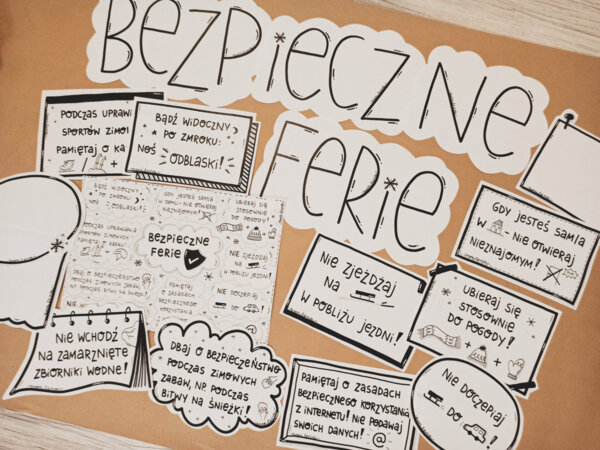 BEZPIECZNE
FERIE
PODCZAS UPRAWI
SPORTÓW ZIMO
PAMIĘTAJ O KA
/ +
BĄDŹ WIDOCZNY
PO ZMROKU:
NOŚ
ODBLASKI!
BĄDŹ WIDOCZNY
PO ZMROKU:
NOŚ
ODBLASKI!
GDY JESTEŚ SAM/A
W DOMU - NIE OTWIERAJ
NIEZNAJOMYM!
UBIERAJ SIĘ
STOSOWNIE
DO POGODY!
PODCZAS UPRAWIANIA
SPORTÓW ZIMOWYCH
PAMIĘTAJ O KASKU!
BEZPIECZNE
FERIE
NIE ZJEŻDŻAJ
NA
W POBLIŻU JEZDNI!
DBAJ O BEZPIECZEŃSTWO
PODCZAS ZIMOWYCH ZABAW,
NP. PODCZAS
BITWY NA ŚNIEŻKI!
PAMIĘTAJ
O ZASADACH
BEZPIECZNEGO
KORZYSTANIA
NIE DOCZEPIAJ
DO
GDY JESTEŚ SAM/A
W - NIE OTWIERAJ
NIEZNAJOMYM!
NIE ZJEŻDŻAJ
NA
W POBLIŻU JEZDNI!
UBIERAJ SIĘ
STOSOWNIE
DO POGODY!
+ +
NIE WCHODŹ
NA ZAMARZNIĘTE
ZBIORNIKI WODNE!
DBAJ O BEZPIECZEŃSTWO
PODCZAS ZIMOWYCH
ZABAW, NP. PODCZAS
BITWY NA ŚNIEŻKI!
PAMIĘTAJ O ZASADACH
BEZPIECZNEGO KORZYSTANIA
Z INTERNETU! NIE PODAWAJ
SWOICH DANYCH! @
NIE DOCZEPIAJ
DO !